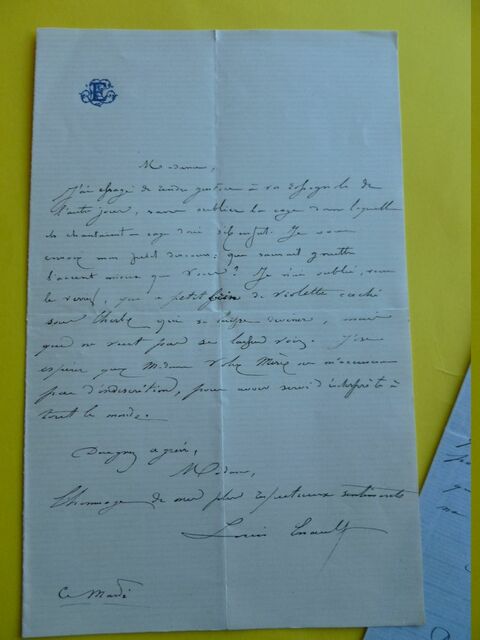 Madame,
J'ai essayé de rendre justice à vos Espagnols de
l'autre jour, sans oublier la cage dans laquelle
ils chantaient
Je vous
envoie mon petit discours: que saurait
l'accent mieux que vous? Je n'ai oublié, vous
le verrez, que ce petit brin de violette caché
sous l'herbe qui se laisse deviner, mais
qui ne veut pas se laisser voir. J'ose
espérer que Madame Votre Mère ne m'accusera
pas d'indiscrétion, pour avoir servi d'interprète à
tout le monde.
Daignez agréer,
Madame,
l'hommage de mes plus respectueux sentiments
Louis Enault
Ce Mardi